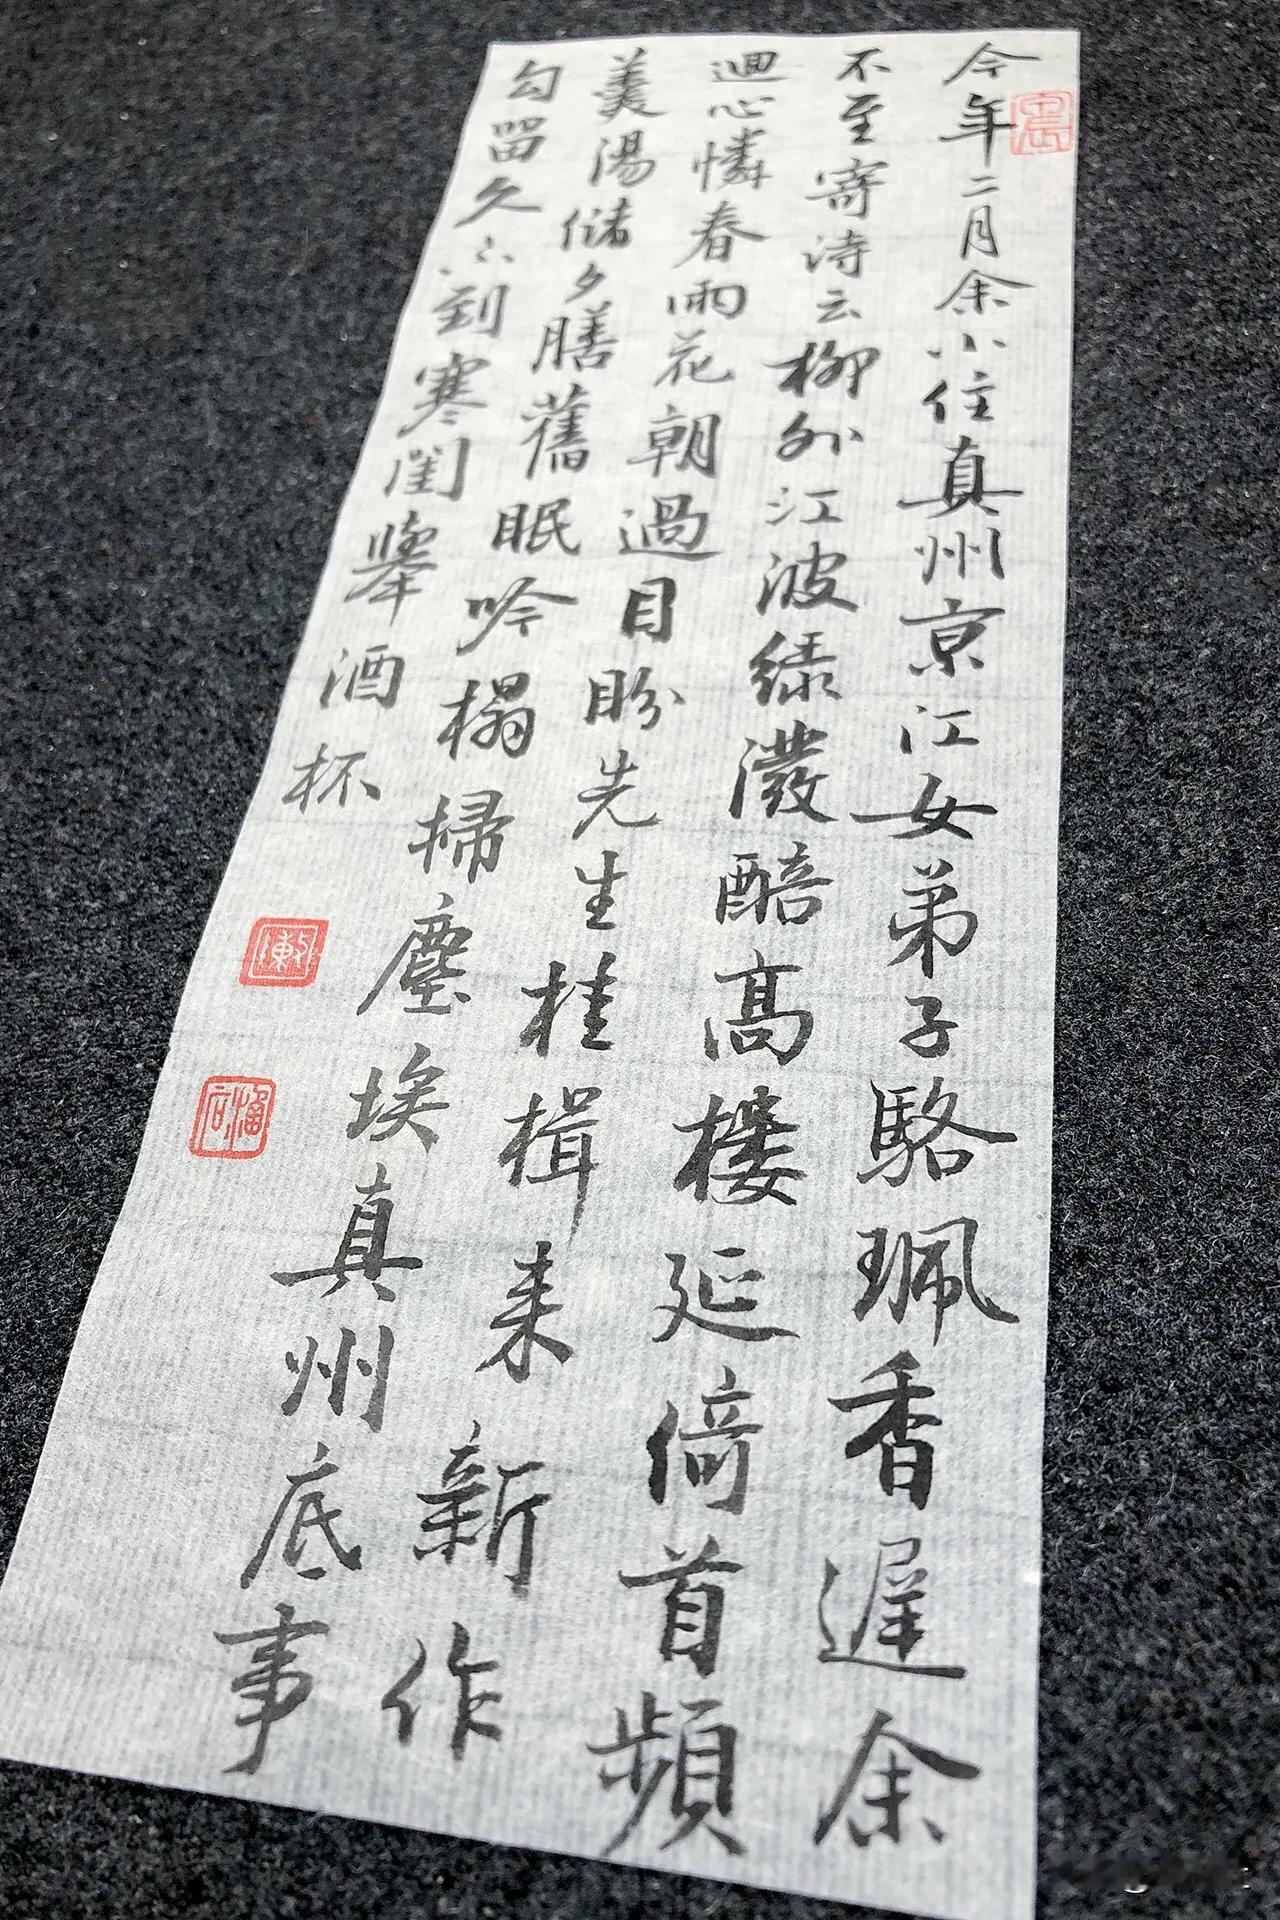 今年二月余小住真州京江女弟子駱珮香遲余
不至寄诗云柳外江波绿潑醅高樓延倚首頻
迴心憐春雨花朝過目盼先生桂楫来新作
羹湯储夕膳舊眠吟榻掃塵埃真州底事
勾留久不到寒閨舉酒杯